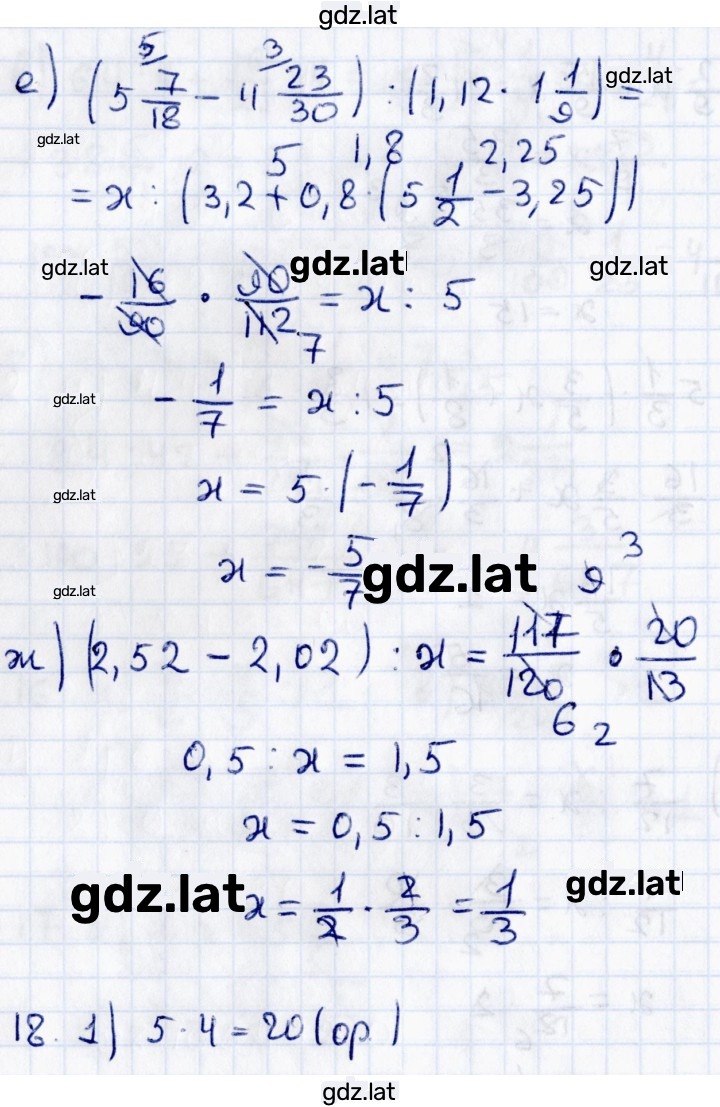 gdz.lat
е) (5 7/18 − 4 23/30) : (1,12 · 1 1/9) =
5 3
gdz.lat
gdz.lat
5 1,8 2,25
= x : (3,2 + 0,8 · (5 1/2 − 3,25))
gdz.lat gdz.lat gdz.lat
− 16/90 · 90/112 = x : 5
7
gdz.lat
− 1/7 = x : 5
gdz.lat
x = 5 · (− 1/7)
gdz.lat
x = − 5/7 gdz.lat 9 3
ж) (2,52 − 2,02) : x = 117/120 · 20/13
6 2
0,5 : x = 1,5
x = 0,5 : 1,5
gdz.lat x = 1/2 · 2/3 = 1/3 gdz.lat
18. 1) 5 · 4 = 20 (ор.)
gdz.lat